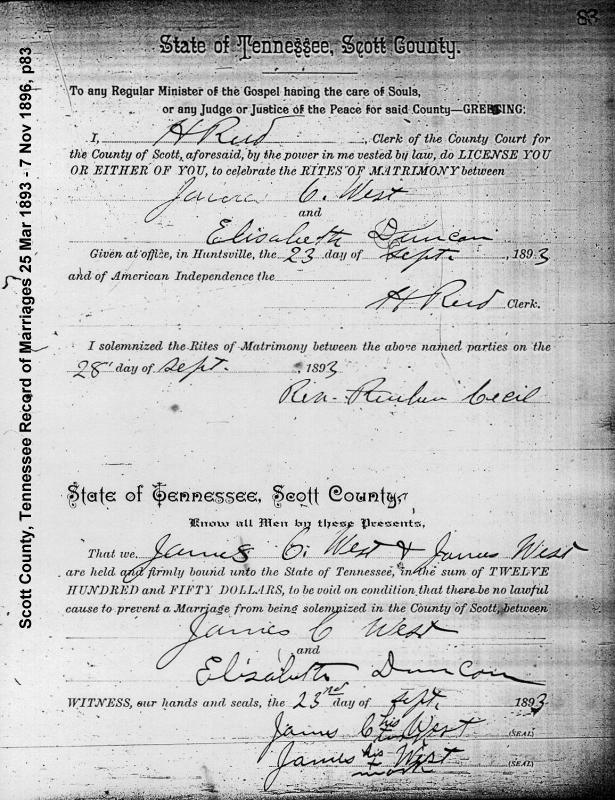 83
State of Tennessee, Scott County.
To any Regular Minister of the Gospel having the care of Souls,
or any Judge or Justice of the Peace for said County—GREETING:
I, H Reid , Clerk of the County Court for
the County of Scott, aforesaid, by the power in me vested by law, do LICENSE YOU
OR EITHER OF YOU, to celebrate the RITES OF MATRIMONY between
James C. West
and
Elisabeth Duncan
Given at office, in Huntsville, the 23 day of Sept. , 1893
and of American Independence the
H Reid Clerk.
I solemnized the Rites of Matrimony between the above named parties on the
28 day of Sept. , 1893
Rev. Reuben Cecil
State of Tennessee, Scott County,
Know all Men by these Presents,
That we James C. West & James West
are held and firmly bound unto the State of Tennessee, in the sum of TWELVE
HUNDRED and FIFTY DOLLARS, to be void on condition that there be no lawful
cause to prevent a Marriage from being solemnized in the County of Scott, between
James C West
and
Elisabeth Duncan
WITNESS, our hands and seals, the 23rd day of Sept. 1893
James C his West (SEAL)
James his West (SEAL)
mark
Scott County, Tennessee Record of Marriages 25 Mar 1893 - 7 Nov 1896, p83